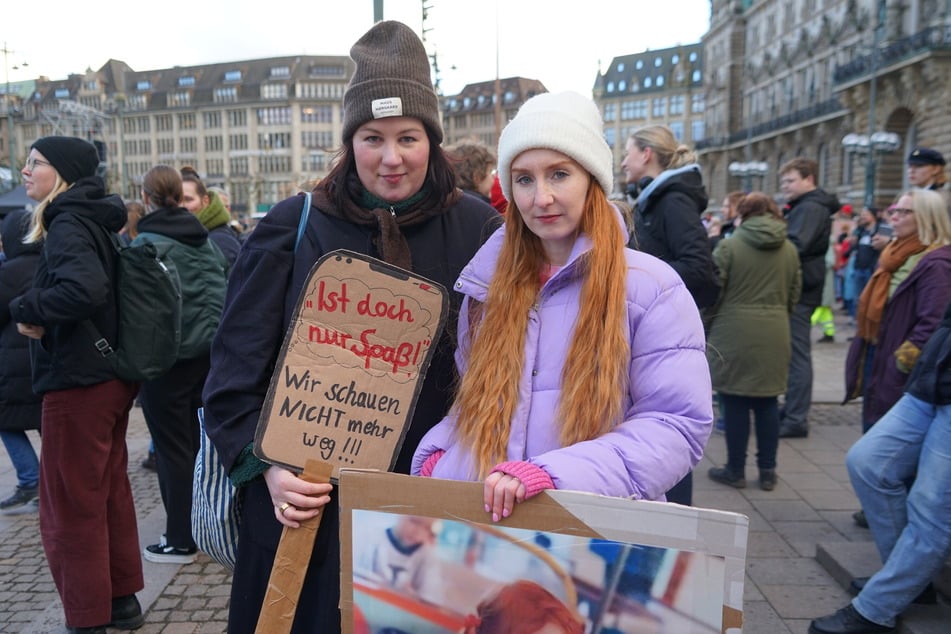 „Ist doch
nur Spaß!"
Wir schauen
NICHT mehr
weg!!!